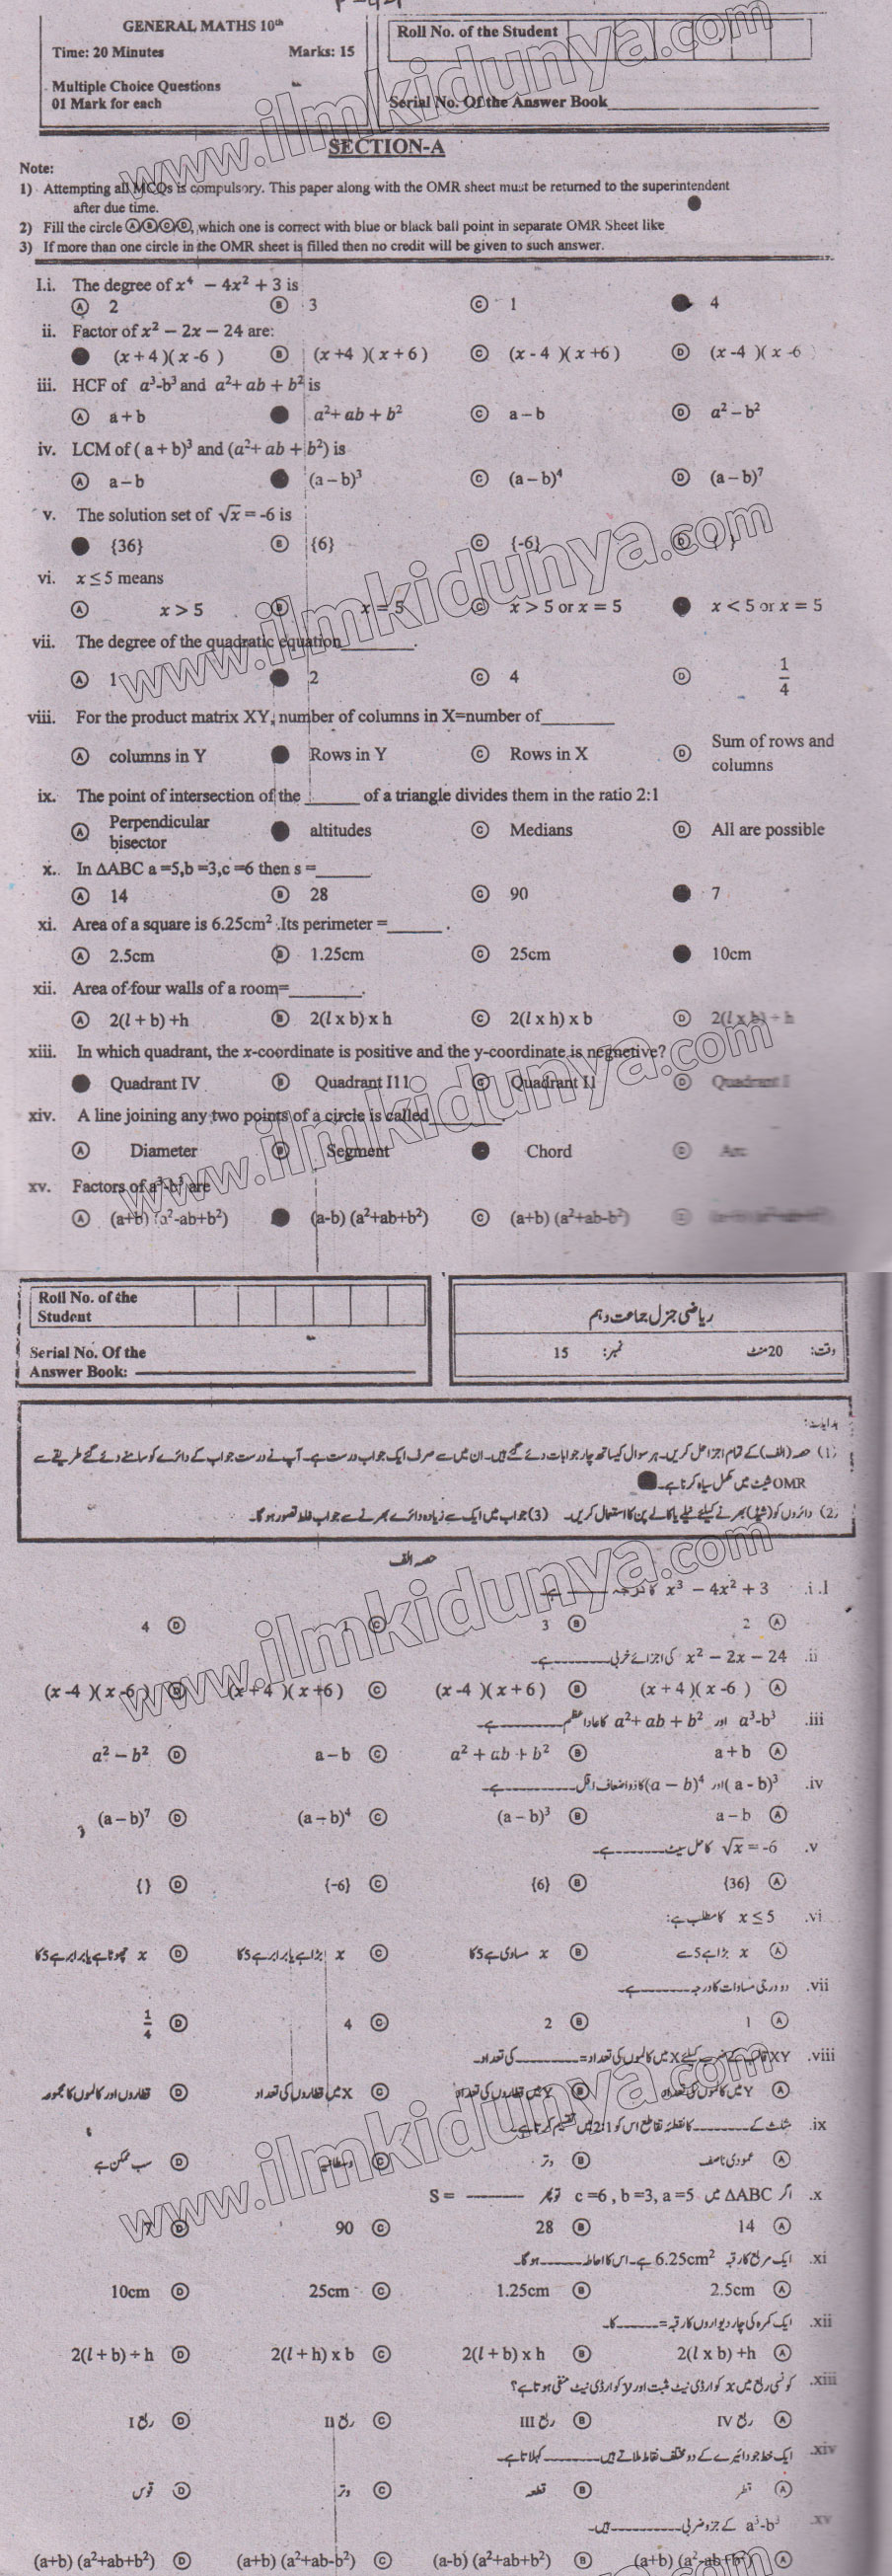 GENERAL MATHS 10th
Time: 20 Minutes Marks: 15
Multiple Choice Questions
01 Mark for each
Roll No. of the Student
Serial No. Of the Answer Book
www.ilmkidunya.com
SECTION-A
Note:
1) Attempting all MCQs is compulsory. This paper along with the OMR sheet must be returned to the superintendent
after due time.
2) Fill the circle Ⓐ/Ⓑ/Ⓒ/Ⓓ, which one is correct with blue or black ball point in separate OMR Sheet like
3) If more than one circle in the OMR sheet is filled then no credit will be given to such answer.
I.i. The degree of x⁴ − 4x² + 3 is
Ⓐ 2 Ⓑ 3 Ⓒ 1 ● 4
ii. Factor of x² − 2x − 24 are:
● (x + 4 )( x -6 ) Ⓑ (x +4 )( x + 6 ) Ⓒ (x - 4 )( x +6 ) Ⓓ (x -4 )( x -6 )
iii. HCF of a³-b³ and a²+ ab + b² is
Ⓐ a + b ● a²+ ab + b² Ⓒ a – b Ⓓ a² − b²
iv. LCM of ( a + b)³ and (a²+ ab + b²) is
Ⓐ a – b ● (a – b)³ Ⓒ (a – b)⁴ Ⓓ (a – b)⁷
v. The solution set of √x = -6 is
● {36} Ⓑ {6} Ⓒ {-6} Ⓓ { }
www.ilmkidunya.com
vi. x ≤ 5 means
Ⓐ x > 5 Ⓑ x = 5 Ⓒ x > 5 or x = 5 ● x < 5 or x = 5
vii. The degree of the quadratic equation________.
Ⓐ 1 ● 2 Ⓒ 4 Ⓓ 1/4
viii. For the product matrix XY, number of columns in X=number of________
Ⓐ columns in Y ● Rows in Y Ⓒ Rows in X Ⓓ Sum of rows and columns
ix. The point of intersection of the ______ of a triangle divides them in the ratio 2:1
Ⓐ Perpendicular bisector ● altitudes Ⓒ Medians Ⓓ All are possible
x. In ΔABC a =5,b =3,c =6 then s =______
Ⓐ 14 Ⓑ 28 Ⓒ 90 ● 7
xi. Area of a square is 6.25cm² .Its perimeter =______ .
Ⓐ 2.5cm Ⓑ 1.25cm Ⓒ 25cm ● 10cm
xii. Area of four walls of a room=________.
Ⓐ 2(l + b) +h Ⓑ 2(l x b) x h Ⓒ 2(l x h) x b Ⓓ 2(l x b) ÷ h
xiii. In which quadrant, the x-coordinate is positive and the y-coordinate is negnetive?
● Quadrant IV Ⓑ Quadrant I11 Ⓒ Quadrant I1 Ⓓ Quadrant I
www.ilmkidunya.com
xiv. A line joining any two points of a circle is called________.
Ⓐ Diameter Ⓑ Segment ● Chord Ⓓ Arc
xv. Factors of a³-b³ are
Ⓐ (a+b) (a²-ab+b²) ● (a-b) (a²+ab+b²) Ⓒ (a+b) (a²+ab-b²)
Roll No. of the Student
Serial No. Of the Answer Book:
ریاضی جنرل جماعت دہم
وقت: 20 منٹ نمبر: 15
ہدایات:
(1) حصہ (الف) کے تمام اجزا حل کریں۔ ہر سوال کیساتھ چار جوابات دئے گئے ہیں۔ ان میں سے صرف ایک جواب درست ہے۔ آپ نے درست جواب کے دائرے کو سامنے دئے گئے طریقے سے
OMR شیٹ میں مکمل سیاہ کرنا ہے۔
(2) دائروں کو (شیڈ) بھرنے کیلئے نیلے یا کالے پن کا استعمال کریں۔ (3) جواب میں ایک سے زیادہ دائرے بھرنے سے جواب غلط تصور ہوگا۔
حصہ الف
www.ilmkidunya.com
i .I x³ − 4x² + 3 کا درجہ ______ ہے۔
Ⓐ 2 Ⓑ 3 Ⓒ 1 Ⓓ 4
ii. x² − 2x − 24 کی اجزائے ضربی ______ ہے۔
Ⓐ (x + 4 )( x -6 ) Ⓑ (x -4 )( x + 6 ) Ⓒ (x + 4 )( x +6 ) Ⓓ (x -4 )( x -6 )
iii. a³-b³ اور a²+ ab + b² کا عاد اعظم ______ ہے۔
Ⓐ a + b Ⓑ a² + ab + b² Ⓒ a – b Ⓓ a² − b²
iv. ( a - b)³ اور (a − b)⁴ کا ذواضعاف اقل ______ ہے۔
Ⓐ a – b Ⓑ (a – b)³ Ⓒ (a – b)⁴ Ⓓ (a – b)⁷
v. √x = -6 کا حل سیٹ ______ ہے۔
Ⓐ {36} Ⓑ {6} Ⓒ {-6} Ⓓ { }
vi. x ≤ 5 کا مطلب ہے:
Ⓐ x بڑا ہے 5 سے Ⓑ x مساوی ہے 5 کا Ⓒ x بڑا ہے یا برابر ہے 5 کا Ⓓ x چھوٹا ہے یا برابر ہے 5 کا
vii. دو درجی مساوات کا درجہ ______ ہے۔
Ⓐ 1 Ⓑ 2 Ⓒ 4 Ⓓ 1/4
viii. XY کیلئے X میں کالموں کی تعداد = ______ کی تعداد۔
Ⓐ Y میں کالموں کی تعداد Ⓑ Y میں قطاروں کی تعداد Ⓒ X میں قطاروں کی تعداد Ⓓ قطاروں اور کالموں کا مجموعہ
www.ilmkidunya.com
ix. مثلث کے ______ کا نقطہ تقاطع اس کو 2:1 میں تقسیم کرتا ہے۔
Ⓐ عمودی ناصف Ⓑ وتر Ⓒ وسطانیہ Ⓓ سب ممکن ہے
x. اگر ΔABC میں c =6 , b =3, a =5 تو پھر ______ S =
Ⓐ 14 Ⓑ 28 Ⓒ 90 Ⓓ 7
xi. ایک مربع کا رقبہ 6.25cm² ہے۔ اس کا احاطہ ______ ہوگا۔
Ⓐ 2.5cm Ⓑ 1.25cm Ⓒ 25cm Ⓓ 10cm
xii. ایک کمرہ کی چار دیواروں کا رقبہ = ______ کا۔
Ⓐ 2(l x b) +h Ⓑ 2(l + b) x h Ⓒ 2(l + h) x b Ⓓ 2(l + b) ÷ h
xiii. کونسی ربع میں x کوارڈی نیٹ مثبت اور y کوارڈی نیٹ منفی ہوتا ہے؟
Ⓐ ربع IV Ⓑ ربع III Ⓒ ربع II Ⓓ ربع I
xiv. ایک خط جو دائیرے کے دو مختلف نقاط ملاتے ہیں ______ کہلاتا ہے۔
Ⓐ قطر Ⓑ قطعہ Ⓒ وتر Ⓓ قوس
xv. a³-b³ کے جزو ضربی ______ ہیں۔
Ⓐ (a+b) (a²-ab+b²) Ⓑ (a-b) (a²+ab+b²) Ⓒ (a+b) (a²+ab-b²) Ⓓ (a+b) (a²+ab+b²)